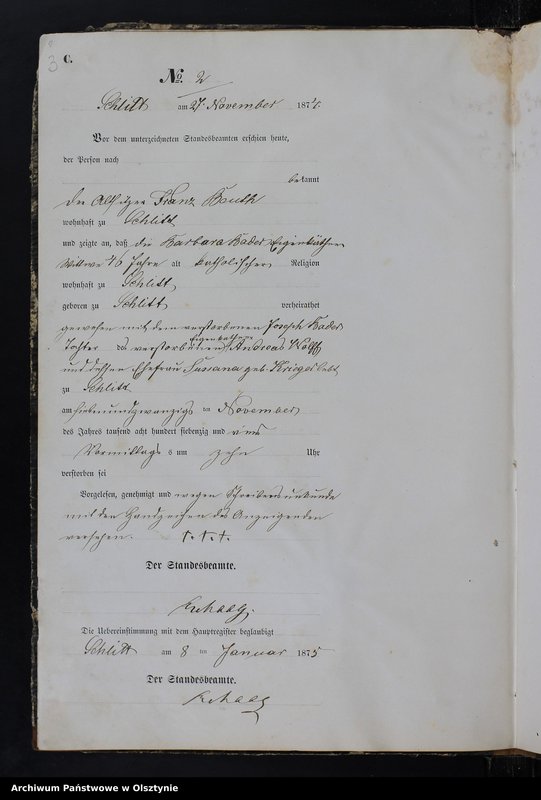 3
C.
№ 2
Schlitt am 27 November 1874.
Vor dem unterzeichneten Standesbeamten erschien heute,
der Person nach
bekannt
der Altsitzer Franz Kauth
wohnhaft zu Schlitt
und zeigte an, daß die Barbara Kader Eigenkäthner
Wittwe 76 Jahre alt katholischer Religion
wohnhaft zu Schlitt,
geboren zu Schlitt verheirathet
gewesen mit dem verstorbenen Joseph Kader
Eigenkäthner
Tochter des verstorbenen Andreas Wolff
und dessen Ehefrau Susana geb. Krieger
zu Schlitt
am siebenundzwanzigsten November
des Jahres tausend acht hundert siebenzig und vier
Vormittags um zehn Uhr
verstorben sei
Vorgelesen, genehmigt und wegen Schreibensunkunde
mit den Handzeichen des Anzeigenden
versehen. †. †. †.
Der Standesbeamte.
Die Uebereinstimmung mit dem Hauptregister beglaubigt
Schlitt am 8 ten Januar 1875
Der Standesbeamte.
Archiwum Państwowe w Olsztynie